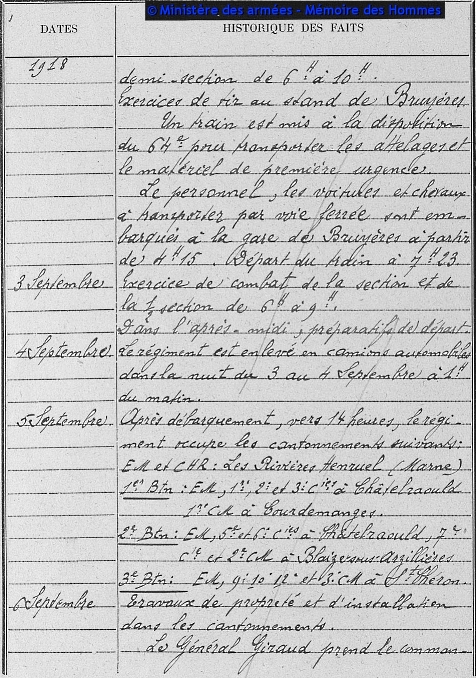 © Ministère des armées - Mémoire des Hommes
DATES HISTORIQUE DES FAITS
1918
demi-section de 6H à 10H.
Exercices de tir au stand de Bruyères.
Un train est mis à la disposition
du 64e pour transporter les attelages et
le matériel de première urgence.
Le personnel, les voitures et chevaux
à transporter par voie ferrée sont em-
barqués à la gare de Bruyères à partir
de 4H15. Départ du train à 7H23
3 Septembre Exercice de combat de la section et de
la 1/2 section de 6H à 9H.
Dans l'après-midi, préparatifs de départ.
4 Septembre. Le régiment est enlevé en camions automobiles
dans la nuit du 3 au 4 Septembre à 1H
du matin.
5 Septembre. Après débarquement, vers 14 heures, le régi-
ment occupe les cantonnements suivants:
EM et CHR: Les Rivières Henruel (Marne)
1er Btn: EM, 1re, 2e et 3e Cies à Châtelraould
1re CM à Courdemanges.
2e Btn: EM, 5e et 6e Cies à Châtelraould, 7e
Cie et 2e CM à Blaize-sous-Arzillières
3e Btn: EM, 9e 10e 11e et 3e CM à St Chéron.
6 Septembre Travaux de propreté et d'installation
dans les cantonnements.
Le Général Giraud prend le comman-